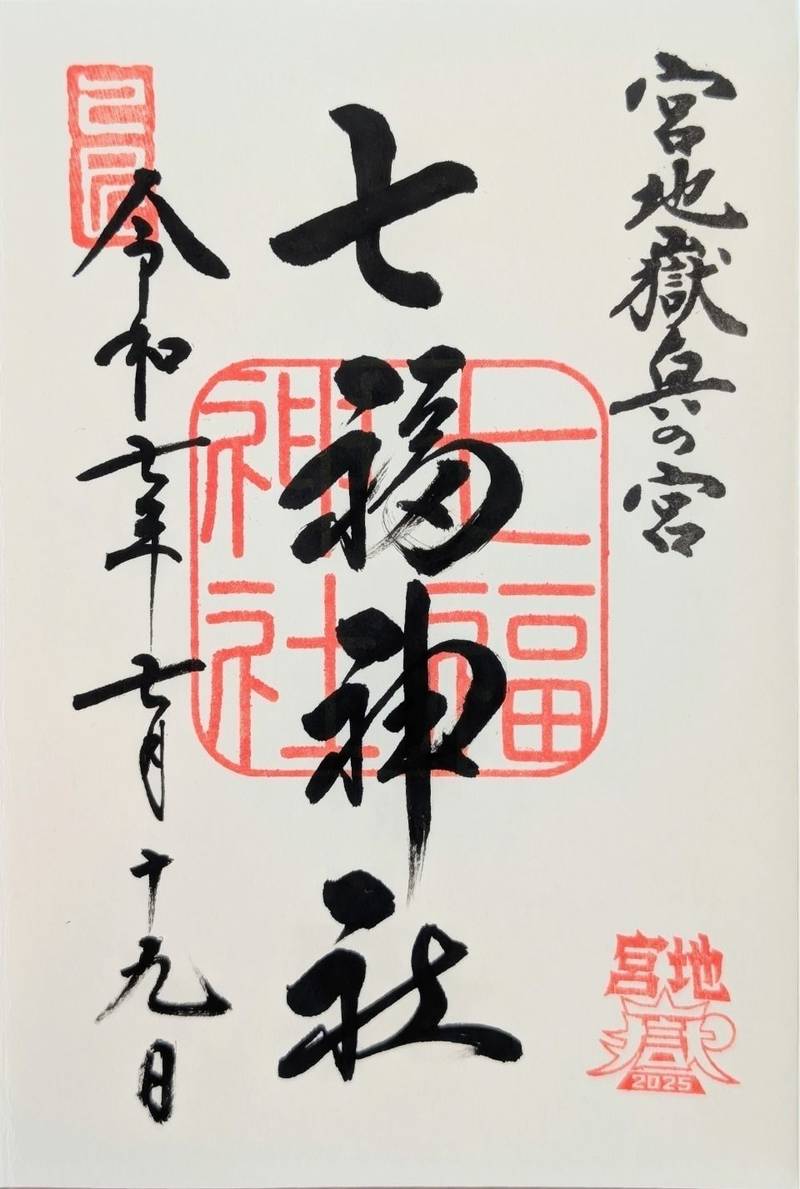 宮地嶽奥の宮
七福神社
七福神社
令和七年七月十九日
宮地
嶽
2025